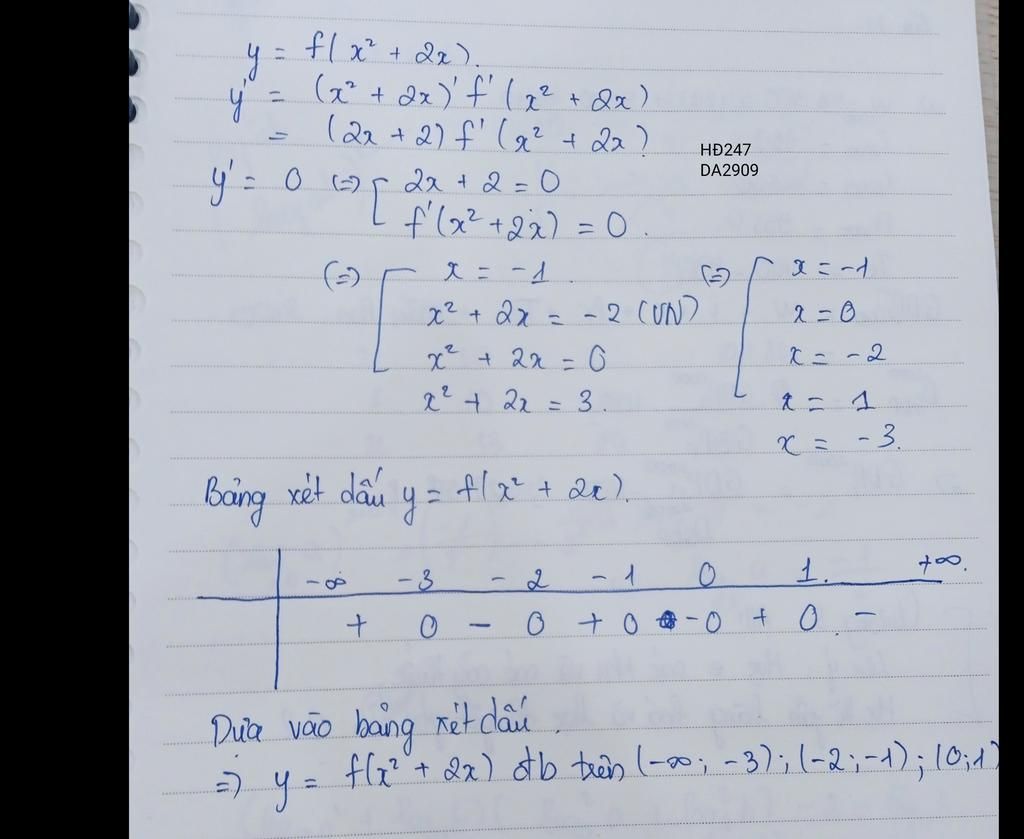 y = f(x² + 2x).
y' = (x² + 2x)' f'(x² + 2x)
= (2x + 2) f'(x² + 2x)
HĐ247
DA2909
y' = 0 (=) [ 2x + 2 = 0
f'(x² + 2x) = 0.
(=) [ x = -1 (=) [ x = -1
x² + 2x = -2 (VN) x = 0
x² + 2x = 0 x = -2
x² + 2x = 3. x = 1
x = -3.
Bảng xét dấu y = f(x² + 2x).
-∞ -3 -2 -1 0 1. +∞.
+ 0 - 0 + 0 - 0 + 0 -
Dựa vào bảng xét dấu.
=) y = f(x² + 2x) đb trên (-∞; -3); (-2; -1); (0; 1)